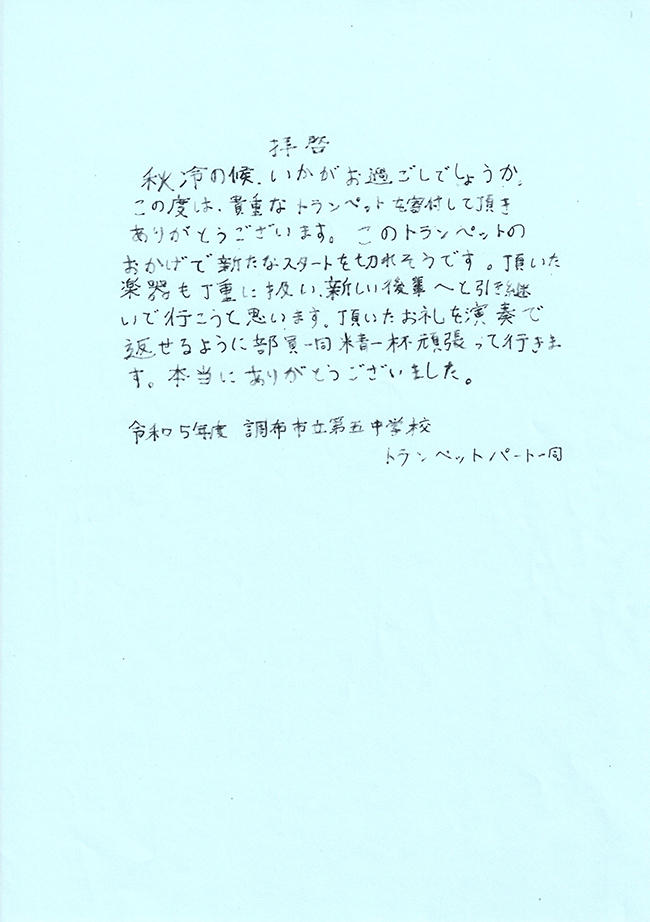 拝啓
秋冷の候、いかがお過ごしでしょうか。
この度は、貴重なトランペットを寄付して頂き
ありがとうございます。このトランペットの
おかげで新たなスタートを切れそうです。頂いた
楽器も丁重に扱い、新しい後輩へと引き継
いで行こうと思います。頂いたお礼を演奏で
返せるように部員一同精一杯頑張って行きま
す。本当にありがとうございました。
令和5年度 調布市立第五中学校
トランペットパート一同